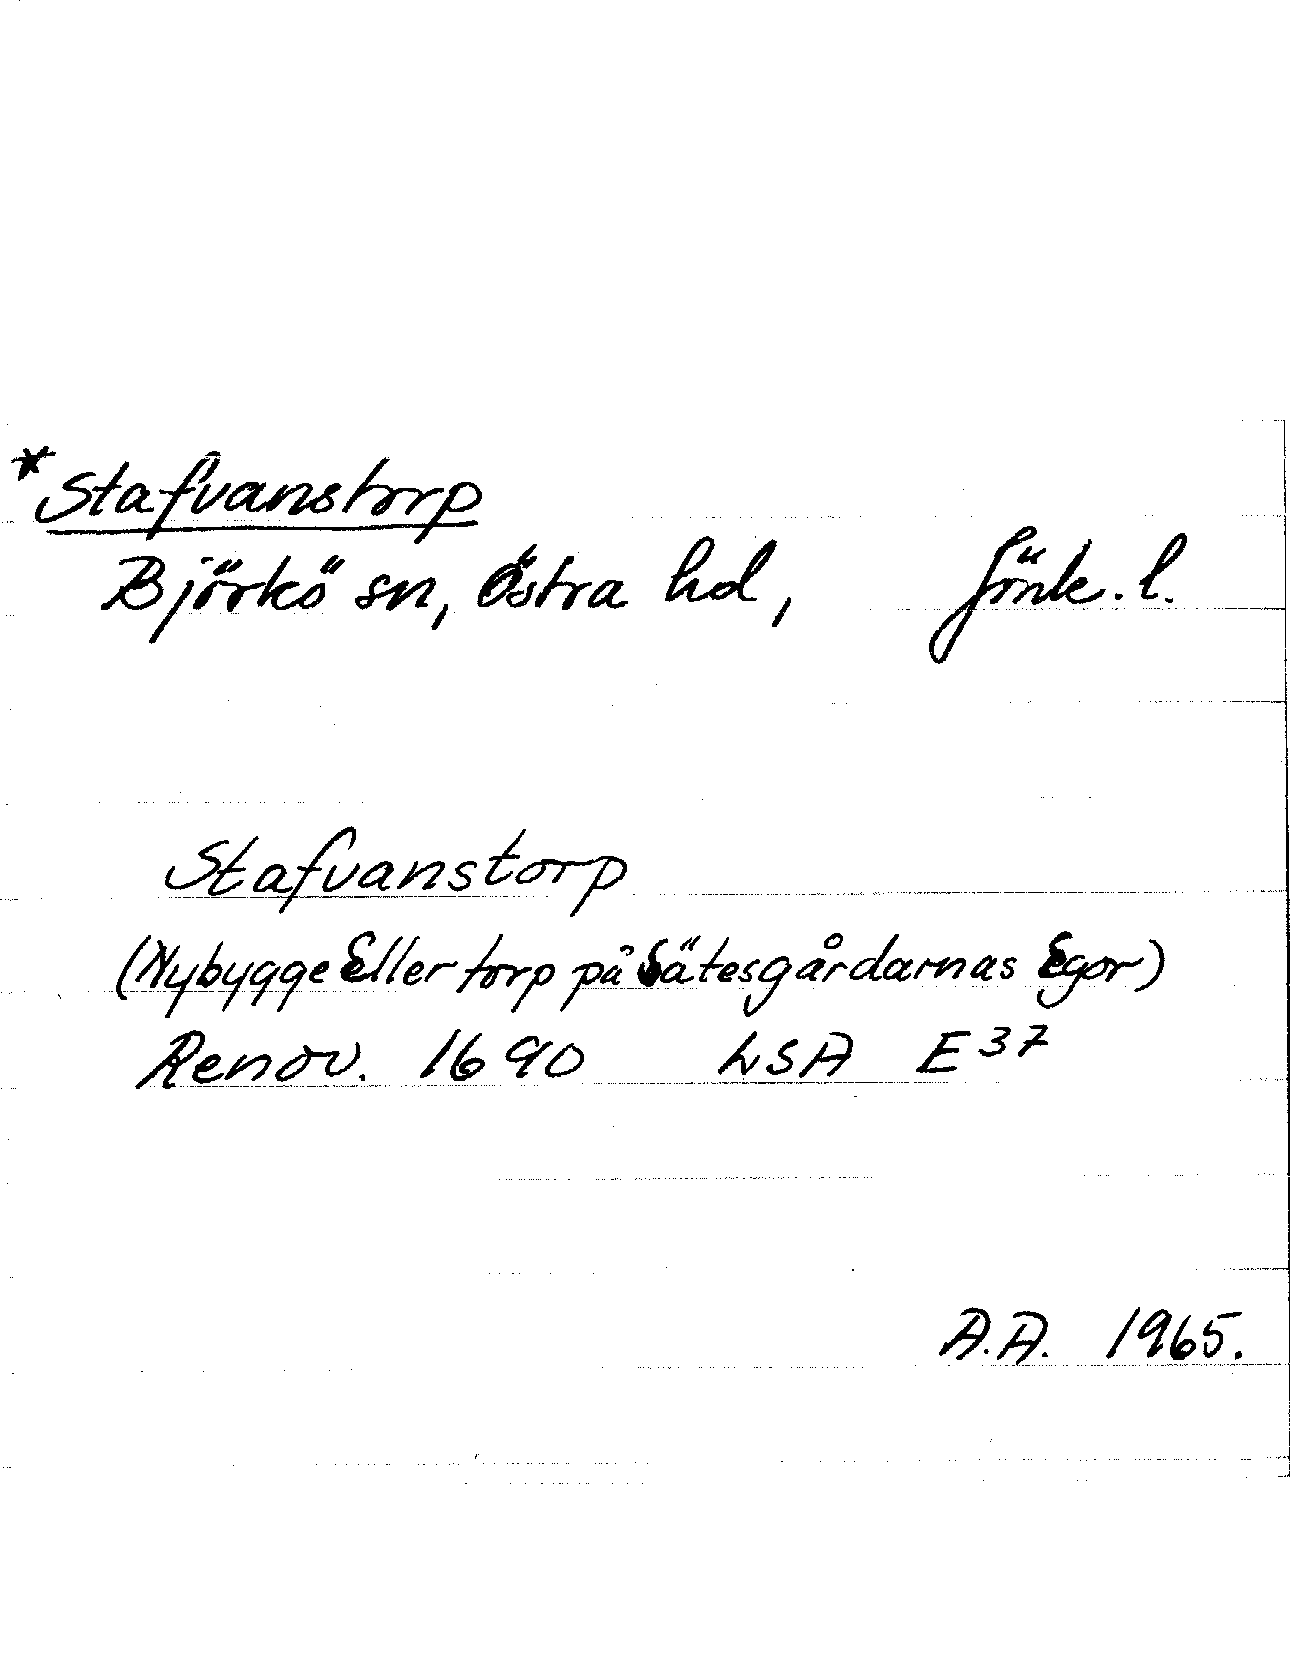 *Stafvanstorp
Björkö sn, Östra hd, Jönk. l.
Stafvanstorp
(Nybygge Eller torp på Sätesgårdarnas Egor)
Renov. 1690 LSA E 37
A.A. 1965.